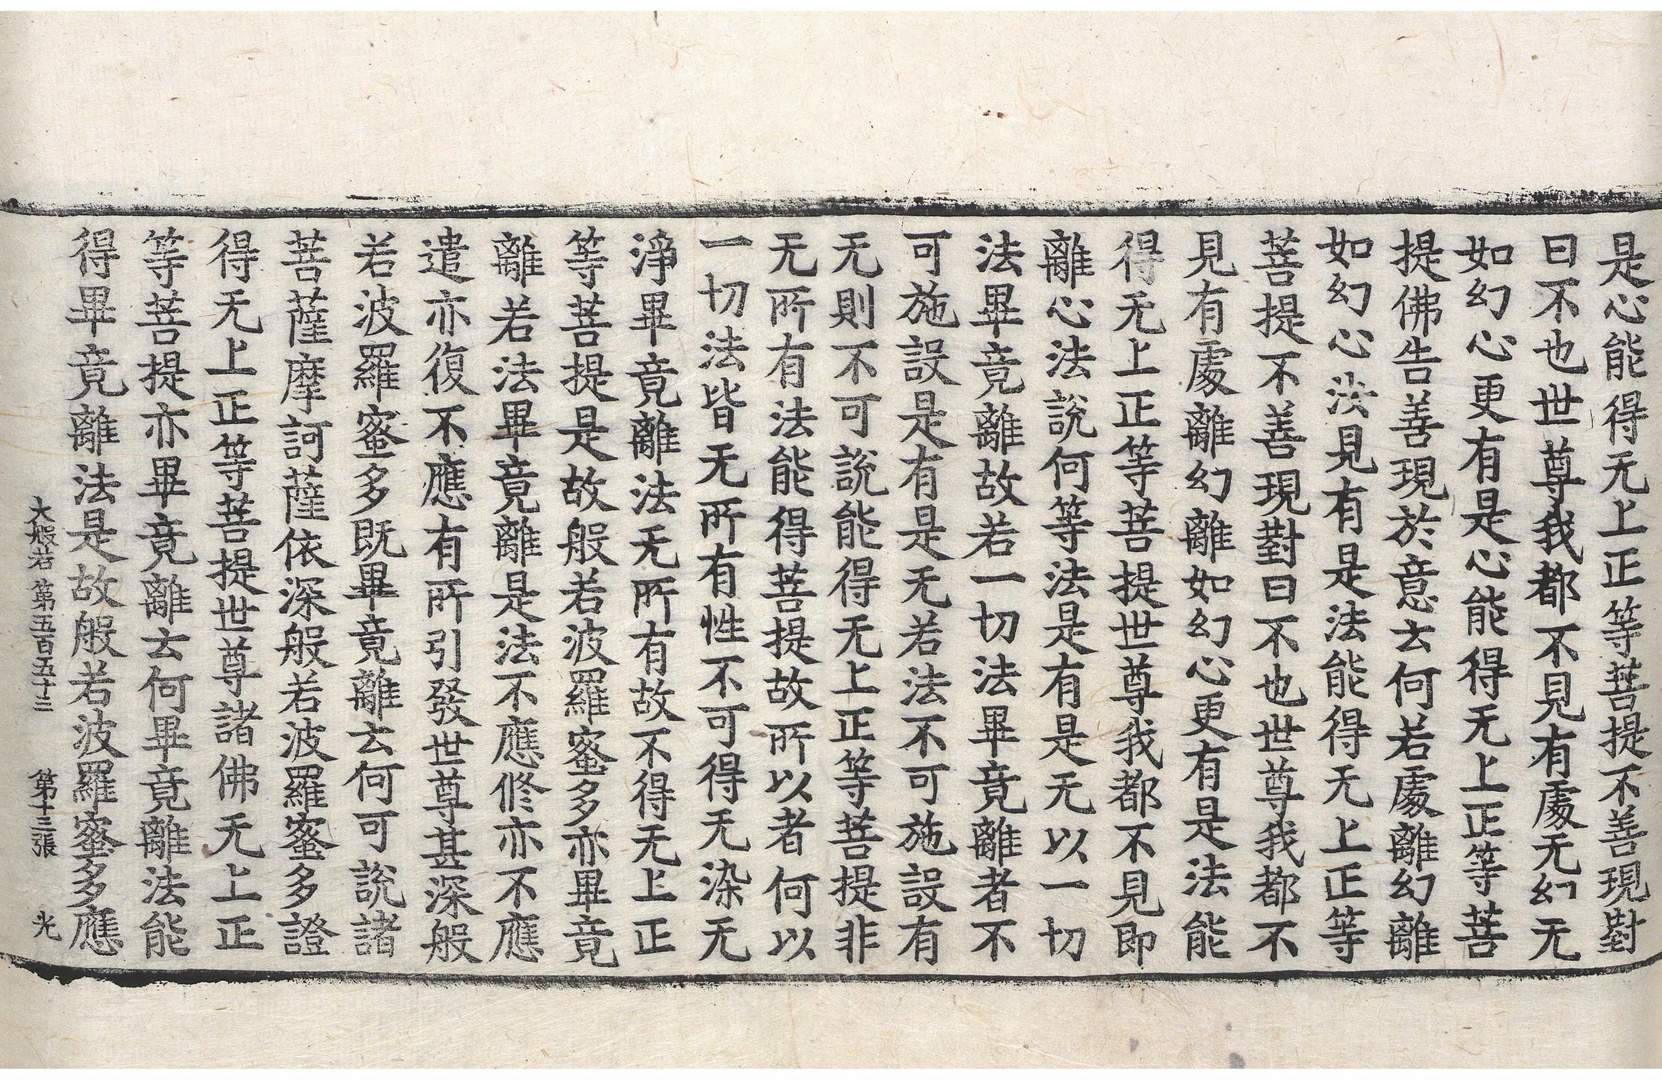 是心能得无上正等菩提不善現對
曰不也世尊我都不見有處无幻无
如幻心更有是心能得无上正等菩
提佛告善現於意云何若處離幻離
如幻心汝見有是法能得无上正等
菩提不善現對曰不也世尊我都不
見有處離幻離如幻心更有是法能
得无上正等菩提世尊我都不見即
離心法說何等法是有是无以一切
法畢竟離故若一切法畢竟離者不
可施設是有是无若法不可施設有
无則不可說能得无上正等菩提非
无所有法能得菩提故所以者何以
一切法皆无所有性不可得无染无
淨畢竟離法无所有故不得无上正
等菩提是故般若波羅蜜多亦畢竟
離若法畢竟離是法不應修亦不應
遣亦復不應有所引發世尊甚深般
若波羅蜜多既畢竟離云何可說諸
菩薩摩訶薩依深般若波羅蜜多證
得无上正等菩提世尊諸佛无上正
等菩提亦畢竟離云何畢竟離法能
得畢竟離法是故般若波羅蜜多應
大般若第五百五十三 第十三張 光